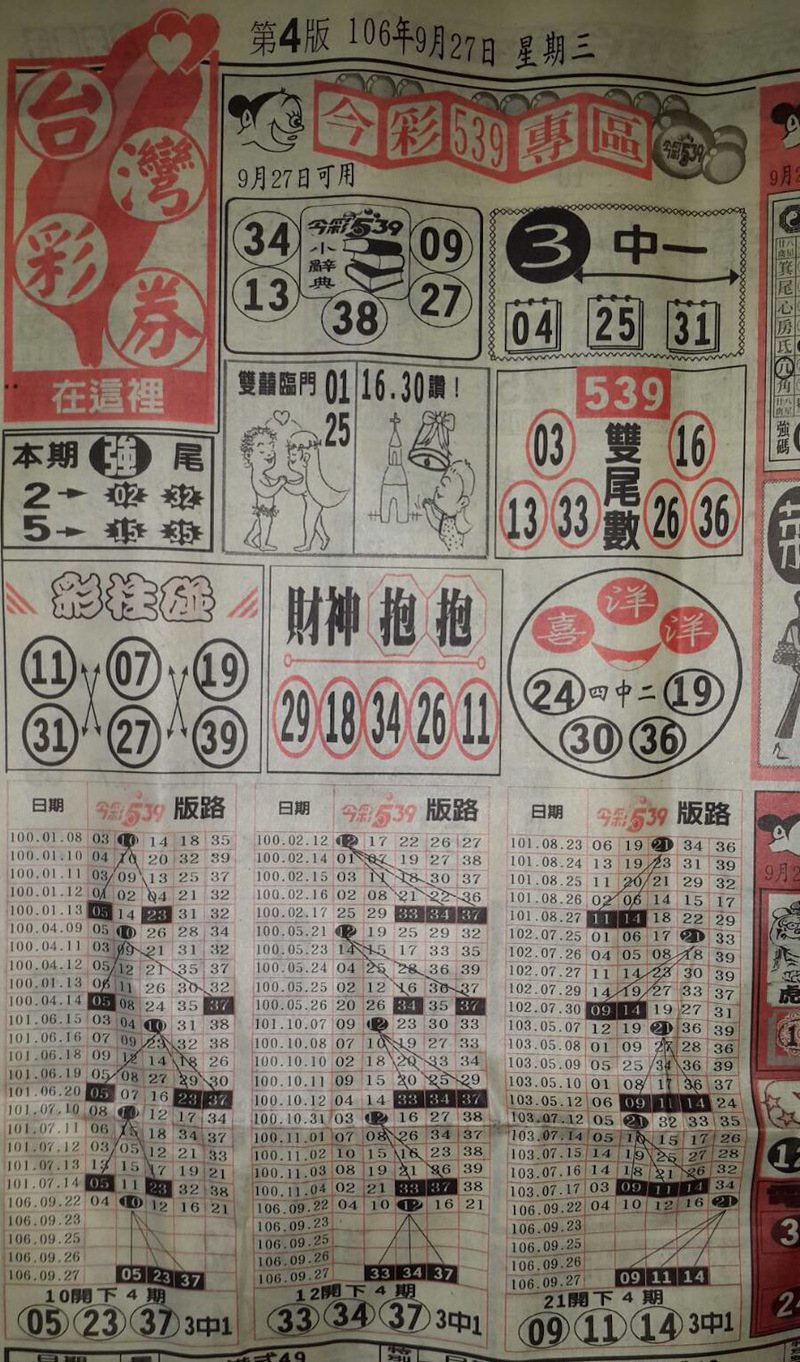 第4版 106年9月27日 星期三
台灣彩券
在這裡
今彩539專區
9月27日可用
今彩539
小辭典
34 09
13 27
38
3中一
04 25 31
本期強尾
2→02 32
5→15 35
雙囍臨門 01
25
16.30讚!
539
雙尾數
03 16
13 33 26 36
彩柱碰
11 07 19
31 27 39
財神抱抱
29 18 34 26 11
喜洋洋
24 四中二 19
30 36
日期 今彩539 版路
100.01.08 03 10 14 18 35
100.01.10 04 10 20 32 39
100.01.11 03 09 13 25 37
100.01.12 01 02 04 21 32
100.01.13 05 14 23 31 32
100.04.09 05 10 26 28 34
100.04.11 03 09 21 31 32
100.04.12 05 12 21 35 37
100.01.13 06 11 26 30 32
100.04.14 05 08 24 35 37
101.06.15 03 04 10 31 38
101.06.16 07 09 23 32 38
101.06.18 09 12 14 18 26
101.06.19 05 08 27 29 30
101.06.20 05 07 16 23 37
101.07.10 08 10 12 17 34
101.07.11 06 15 18 34 37
101.07.12 03 05 12 21 33
101.07.13 12 15 17 19 21
101.07.14 05 11 23 32 38
106.09.22 04 10 12 16 21
106.09.23
106.09.25
106.09.26
106.09.27 05 23 37
10開下4期
05 23 37 3中1
日期 今彩539 版路
100.02.12 12 17 22 26 27
100.02.14 01 07 19 27 38
100.02.15 03 11 18 30 37
100.02.16 02 08 21 22 36
100.02.17 25 29 33 34 37
100.05.21 12 19 25 29 32
100.05.23 14 15 17 33 35
100.05.24 04 25 28 36 39
100.05.25 02 12 16 36 37
100.05.26 20 26 34 35 37
101.10.07 09 12 23 30 33
100.10.08 07 10 19 27 33
100.10.10 02 18 20 33 34
100.10.11 09 15 20 25 29
100.10.12 04 14 33 34 37
100.10.31 03 12 16 27 38
100.11.01 07 08 26 34 37
100.11.02 10 15 16 23 38
100.11.03 08 19 21 36 39
100.11.04 02 21 33 37 38
106.09.22 04 10 12 16 21
106.09.23
106.09.25
106.09.26
106.09.27 33 34 37
12開下4期
33 34 37 3中1
日期 今彩539 版路
101.08.23 06 19 21 34 36
101.08.24 13 19 23 31 39
101.08.25 11 20 21 29 32
101.08.26 02 06 14 15 17
101.08.27 11 14 18 22 29
102.07.25 01 06 17 21 33
102.07.26 04 05 08 18 39
102.07.27 11 14 23 30 39
102.07.29 14 19 27 33 37
102.07.30 09 14 19 27 31
103.05.07 12 19 21 36 39
103.05.08 01 09 27 28 36
103.05.09 05 25 34 36 39
103.05.10 01 08 17 36 37
103.05.12 06 09 11 14 24
103.07.12 05 21 32 33 35
103.07.14 05 10 15 17 26
103.07.15 14 19 25 27 28
103.07.16 14 18 21 26 32
103.07.17 03 09 11 14 34
106.09.22 04 10 12 16 21
106.09.23
106.09.25
106.09.26
106.09.27 09 11 14
21開下4期
09 11 14 3中1